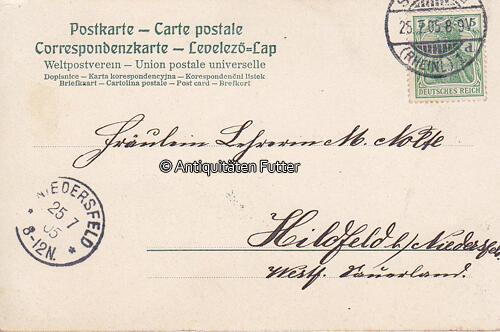 Postkarte – Carte postale
Correspondenzkarte – Levelező-Lap
Weltpostverein – Union postale universelle
Dopisnice – Karta korespondencyjna – Korespondenční lístek
Briefkaart – Cartolina postale – Post card – Brefkort
25.7.05.8-9V
(RHEINL.)
DEUTSCHES REICH
Fräulein Lehrerin M. Nolte
© Antiquitäten Futter
NIEDERSFELD
25 7
05
8-12N.
Hildfeld b/Niedersfeld
Westf. Sauerland.